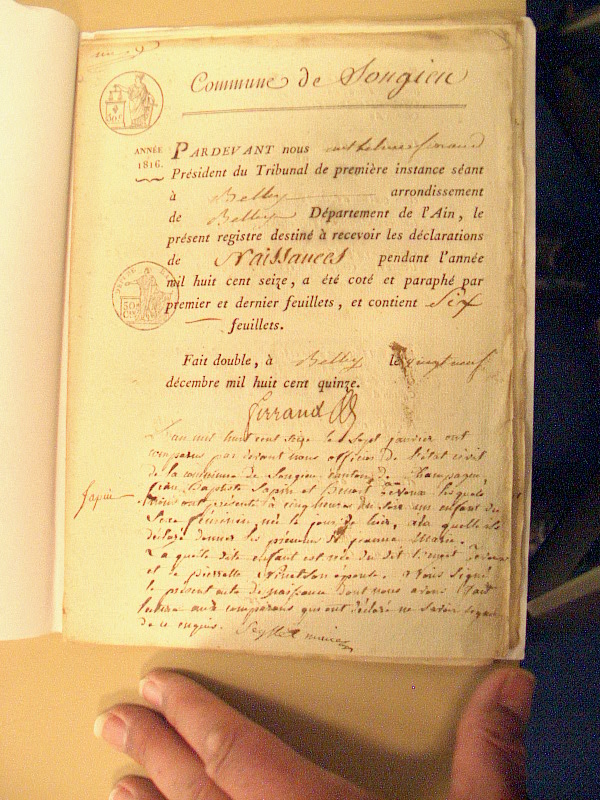 Commune de Songieu
ANNÉE
1816.
PARDEVANT nous ferrand
Président du Tribunal de première instance séant
à Belley arrondissement
de Belley Département de l'Ain, le
présent registre destiné à recevoir les déclarations
de Naissances pendant l'année
mil huit cent seize, a été coté et paraphé par
premier et dernier feuillets, et contient Six
feuillets.
Fait double, à Belley le vingt neuf
décembre mil huit cent quinze.
ferrand
L'an mil huit cent seize le sept janvier ont
comparus par devant nous officier de l'état civil
de la commune de Songieu canton de Champagne,
Jean Baptiste Lapin et Benoit les quels
nous ont présenté à cinq heures du soir un enfant du
Sexe féminin, née le jour de hier, à la quelle ils
déclaré donner les prénoms de jeanne Marie.
La quelle dite enfant est née du dit benoit
et de pierrette épouse. Nous signé
le présent acte de naissance dont nous avons fait
lecture aux comparans qui ont déclaré ne savoir signer
de ce enquis. maire